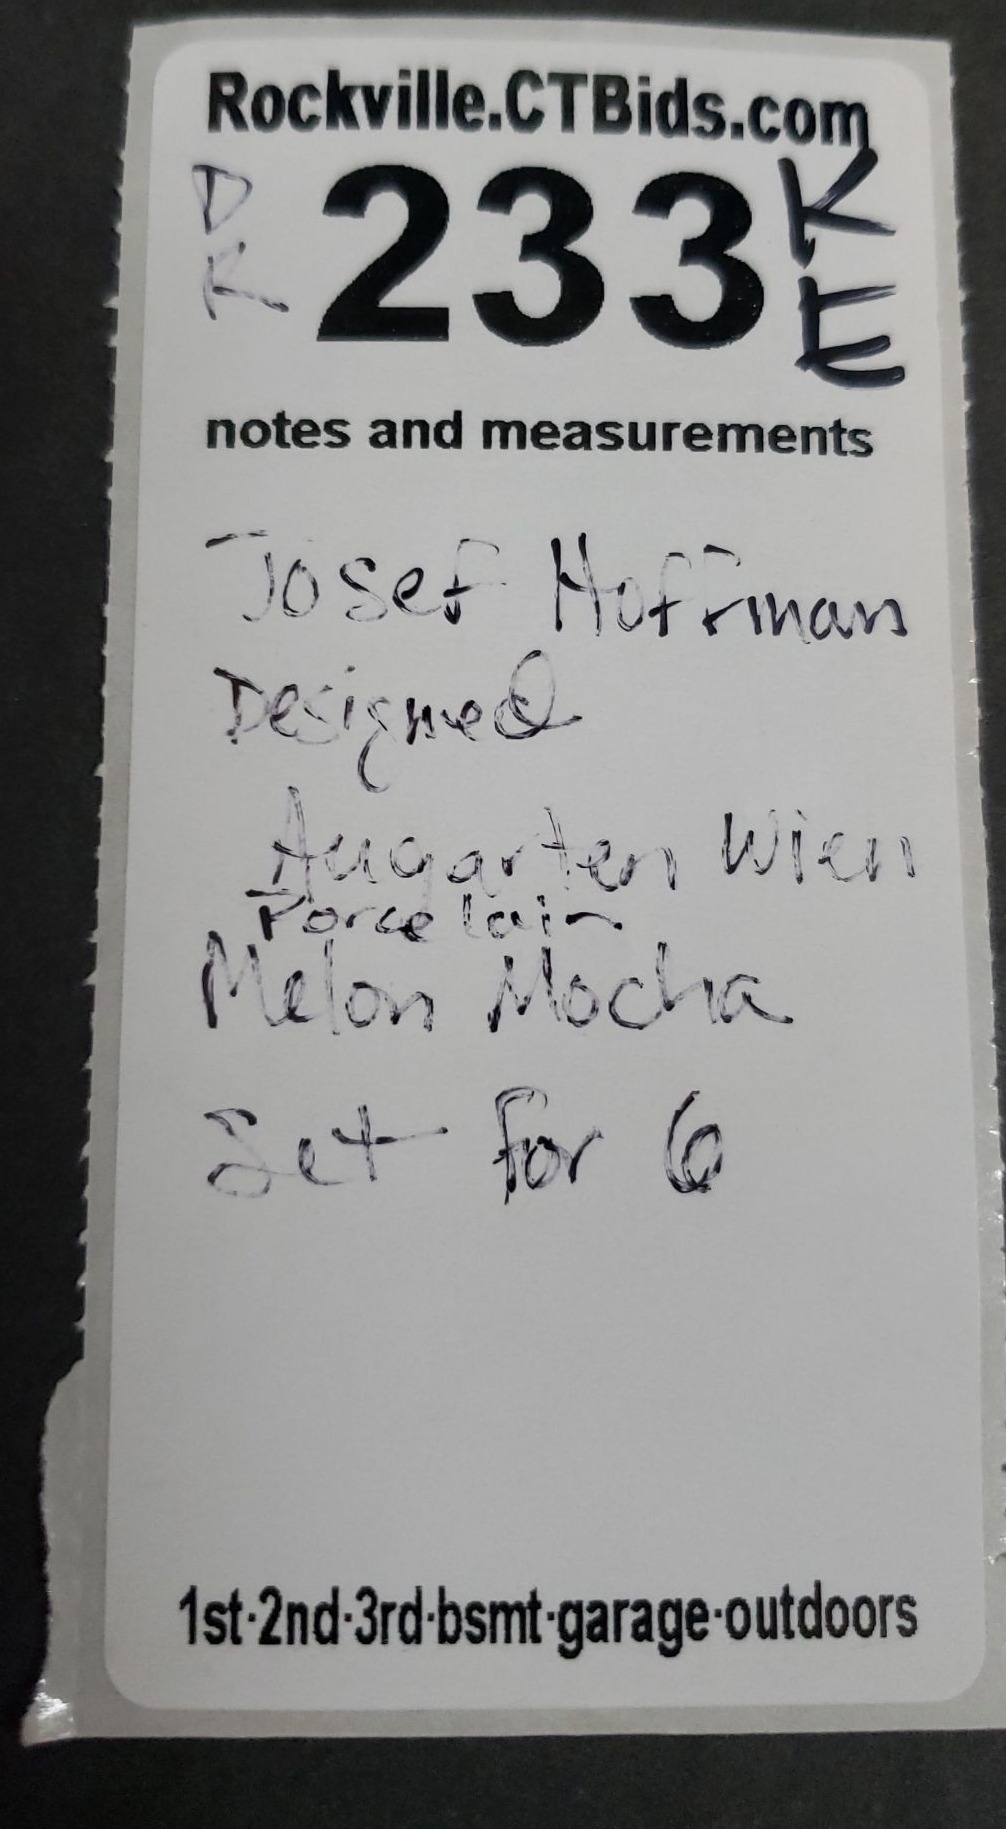 Rockville.CTBids.com
DR 233 KE
notes and measurements
Josef Hoffman
Designed
Augarten Wien
Porcelain
Melon Mocha
Set for 6
1st·2nd·3rd·bsmt·garage·outdoors